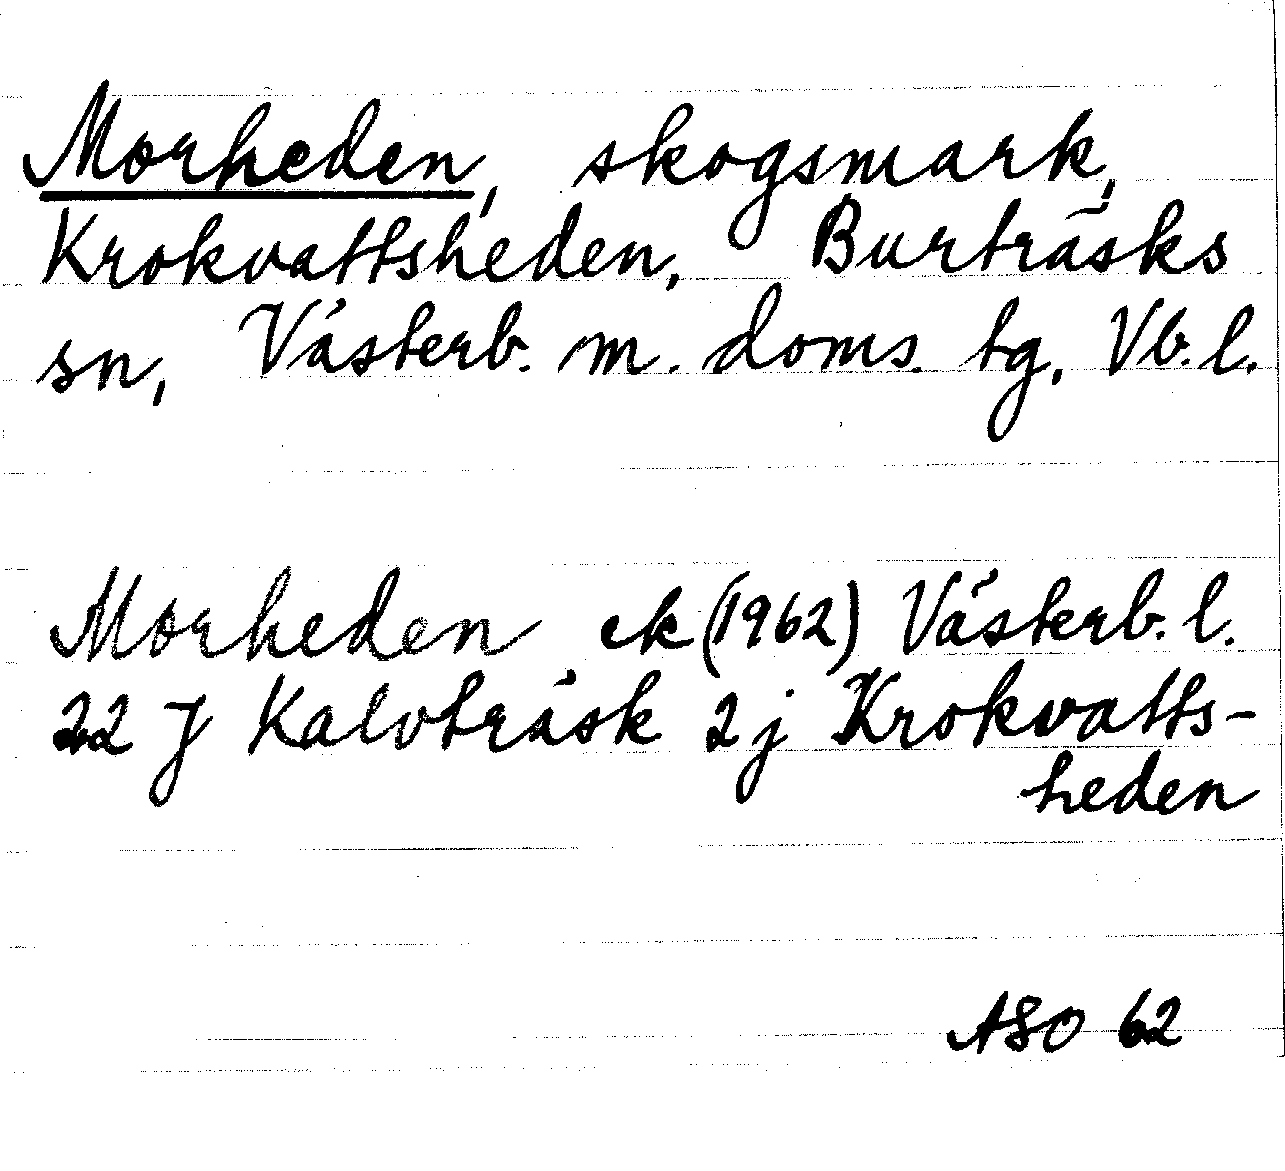 Morheden, skogsmark,
Krokvattsheden, Burträsks
sn, Västerb. m. doms. tg, Vb. l.
Morheden ek (1962) Västerb. l.
22 J Kalvträsk 2j Krokvatts-
heden
ASO 62